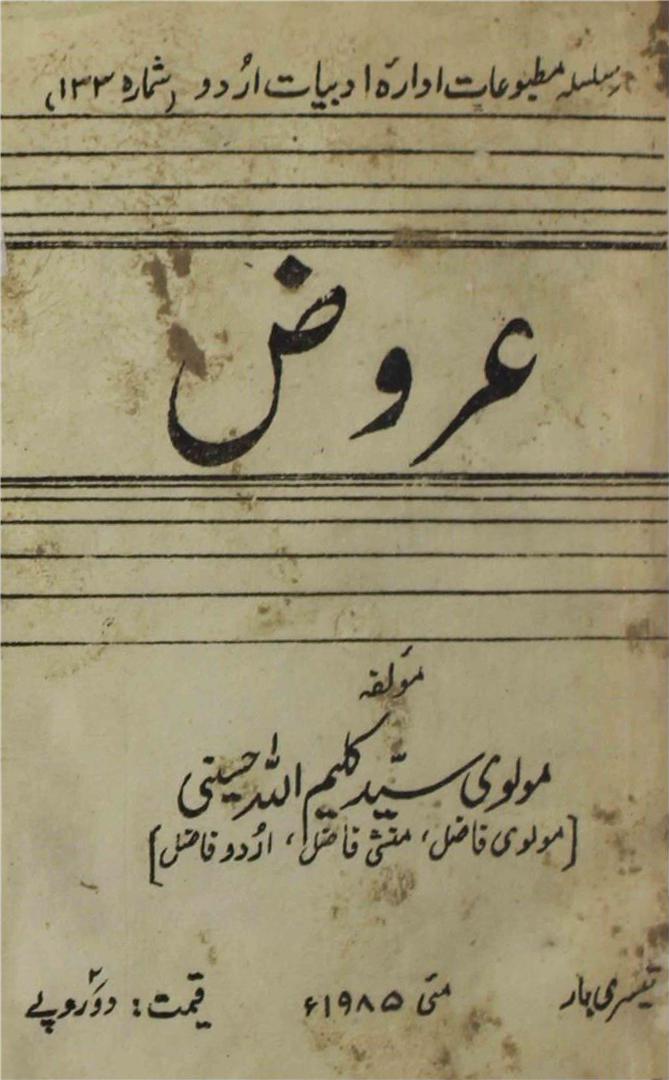 سلسلہ مطبوعات ادارہ ادبیات اُردو (شمارہ ۱۳۳)
عروض
مؤلفہ
مولوی سیّد کلیم اللہ حسینی
[مولوی فاضل، منشی فاضل، اُردو فاضل]
تیسری بار مئی ۱۹۸۵ء قیمت: دو ۲ روپے